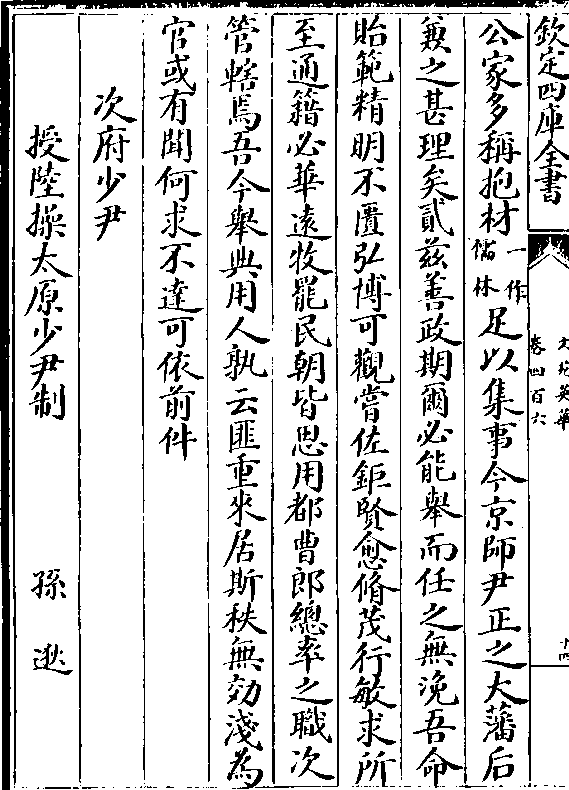 欽定四庫全書
文苑英華
卷四百六
十四
公家多稱抱材一作儒林足以集事今京師尹正之大藩后
㐮之甚理矣貳兹善政期爾必能舉而任之無㳽吾命
貽範精明不匱弘博可觀嘗佐鉅賢愈脩茂行敏求所
至通籍必華遠牧罷民朝皆思用都曹郎總率之職次
管轄焉吾今舉典用人孰云匪重來居斯秩無効淺為
官或有聞何求不達可依前件
次府少尹
授陸操太原少尹制
孫逖